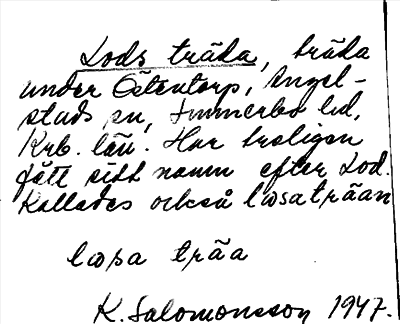 Lods träda, träda
under Östentorp, Angel-
stads sn, Sunnerbo hd,
Krb. län. Har troligen
fått sitt namn efter Lod.
Kallades också lωsaträan
lωsa träa
K. Salomonsson 1947.